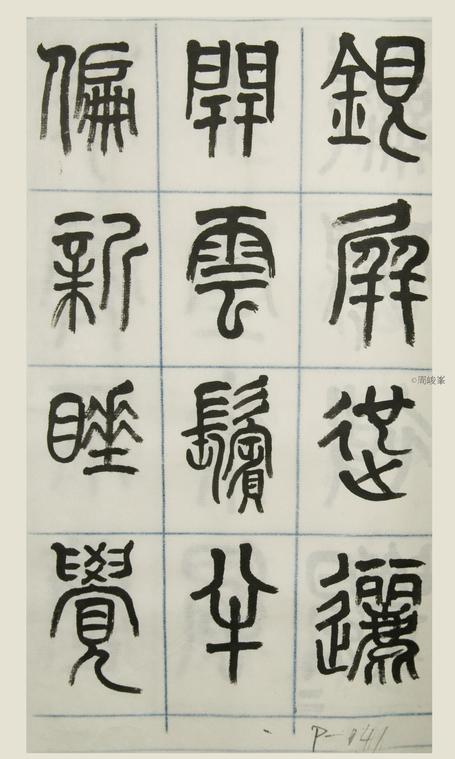 銀屏迤邐
開雲鬢半
偏新睡覺
©周峻峯
P-141